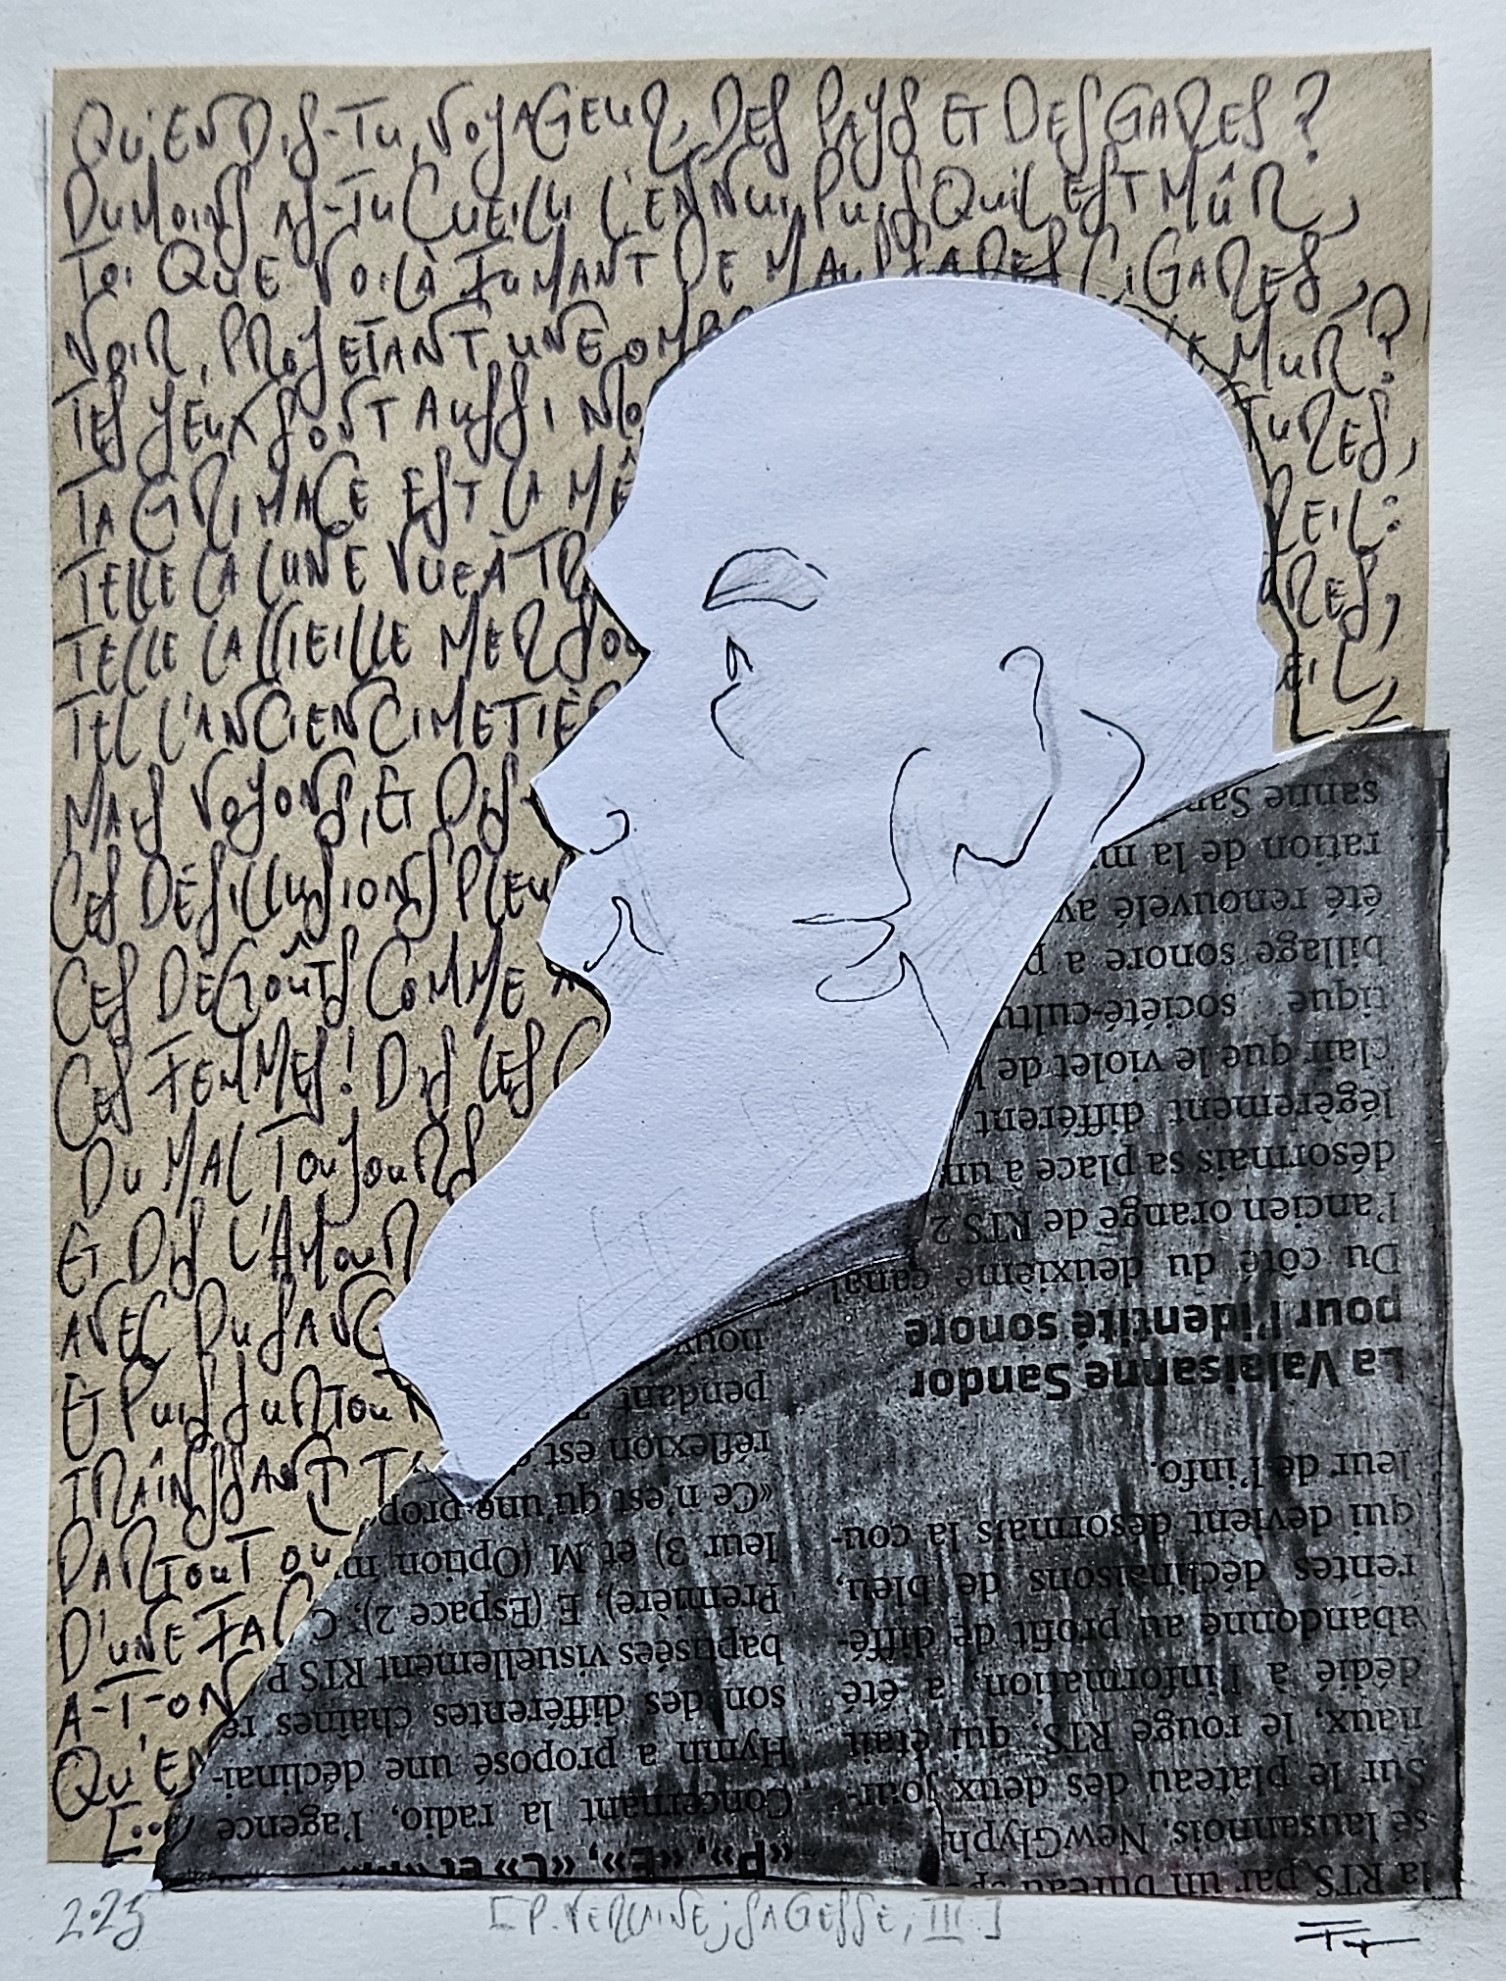 QU'EN DIS-TU, VOYAGEUR, DES PAYS ET DES GARES ?
DU MOINS AS-TU CUEILLI L'ENNUI, PUISQU'IL EST MÛR,
TOI QUE VOILÀ FUMANT DE MAUSSADES CIGARES,
NOIR, PROJETANT UNE OMB MUR ?
TES YEUX SONT AUSSI MO TURES,
TA GRIMACE EST LA MÊ REIL :
TELLE LA LUNE VUE À TR RES,
TELLE LA VIEILLE MER SOU EIL,
TEL L'ANCIEN CIMETIÈR
MAIS VOYONS, ET DIS-
CES DÉSILLUSIONS PLEU
CES DÉGOÛTS COMME
CES FEMMES ! DIS LES
DU MAL TOUJOURS
ET DIS L'AMOUR
AVEC DU SANG
ET PUIS SURTOUT
TRAÎNASSANT TA
PARTOUT OÙ
D'UNE FAÇ
A-T-ON
QU'EN
[...
la RTS par un bureau sp
sé lausannois, NewGlyph
Sur le plateau des deux jour-
naux, le rouge RTS, qui était
dédié à l'information, a été
abandonné au profit de diffé-
rentes déclinaisons de bleu,
qui devient désormais la cou-
leur de l'info.
La Valaisanne Sandor
pour l'identité sonore
Du côté du deuxième canal
l'ancien orange de RTS 2
désormais sa place à un
légèrement différent
clair que le violet de
tique société-cultu
billage sonore a p
été renouvelé av
ration de la mu
sanne San
«P», «E», «C» et
Concernant la radio, l'agence
Hymn a proposé une déclinai-
son des différentes chaînes re
baptisées visuellement RTS P
Première), E (Espace 2), C
leur 3) et M (Option mu
«Ce n'est qu'une prop
réflexion est
pendant
nouv
2.25
[P. VERLAINE ; SAGESSE, III]